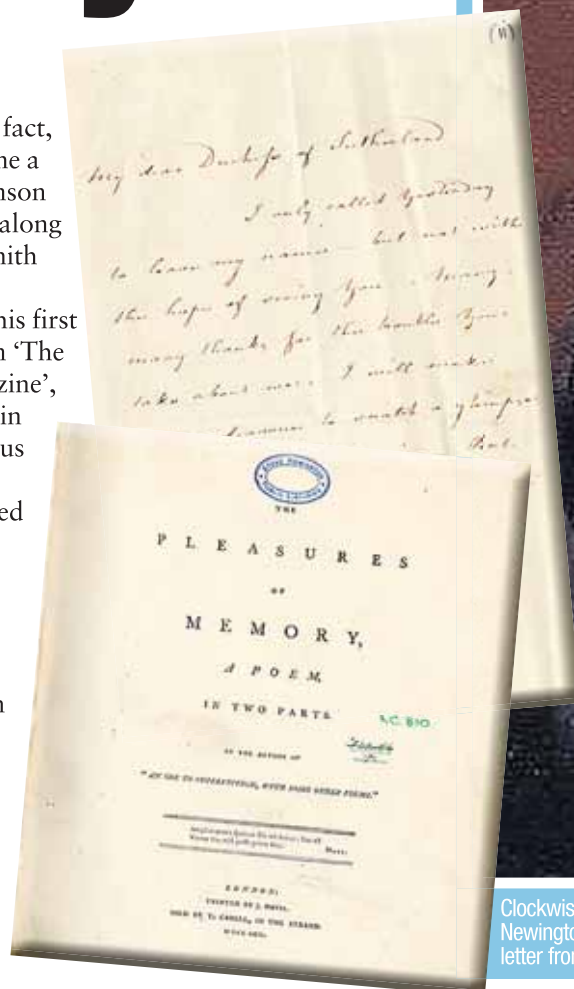 fact,
me a
nson
along
mith
his first
n ‘The
zine’,
in
us
ed
n
(vi)
My dear Duchess of Sutherland
I only called yesterday
to leave my name – but not with
the hope of seeing you. Many,
many thanks for the trouble you
take about me. I will make
to snatch a glimpse
But
STOKE NEWINGTON
PUBLIC LIBRARIES
THE
PLEASURES
OF
MEMORY,
A POEM,
IN TWO PARTS.
R.C. 810
BY THE AUTHOR OF
"AN ODE TO SUPERSTITION, WITH SOME OTHER POEMS."
MART.
LONDON:
PRINTED BY J. DAVIS,
SOLD BY T. CADELL, IN THE STRAND.
Clockwis
Newingto
letter fron